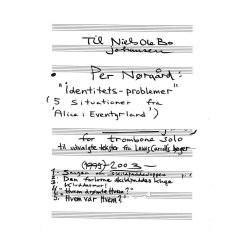 Til Niels Ole Bo
Johansen
Per Nørgård:
"Identetets-problemer"
(5 situationer fra
'Alice i Eventyrland')
for trombone solo
til udvalgte tekster fra Lewis Carrolls bøger
(1999) 2003 —
1: Sangen om skildpaddesuppen
2: Den forlorne skildpaddes kluge
4: Hvem drømte Hvem?
5: Hvem var Hvem?